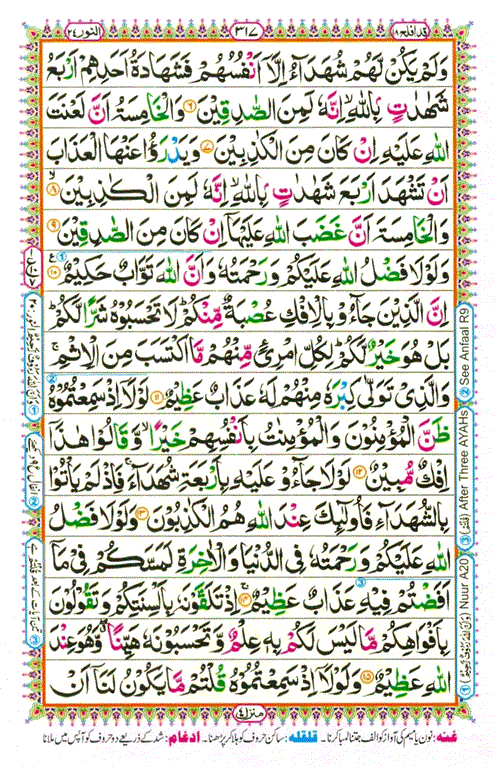 قد افلح ۱۸
۳۱۷
النور ۲۴
وَلَمْ يَكُنْ لَّهُمْ شُهَدَآءُ اِلَّاۤ اَنْفُسُهُمْ فَشَهَادَةُ اَحَدِهِمْ اَرْبَعُ
شَهٰدٰتٍۭ بِاللّٰهِ ۙ اِنَّهٗ لَمِنَ الصّٰدِقِيْنَ ۶ وَالْخَامِسَةُ اَنَّ لَعْنَتَ
اللّٰهِ عَلَيْهِ اِنْ كَانَ مِنَ الْكٰذِبِيْنَ ۷ وَيَدْرَؤُا عَنْهَا الْعَذَابَ
اَنْ تَشْهَدَ اَرْبَعَ شَهٰدٰتٍۭ بِاللّٰهِ ۙ اِنَّهٗ لَمِنَ الْكٰذِبِيْنَ ۙ ۸
وَالْخَامِسَةَ اَنَّ غَضَبَ اللّٰهِ عَلَيْهَاۤ اِنْ كَانَ مِنَ الصّٰدِقِيْنَ ۹
وَلَوْلَا فَضْلُ اللّٰهِ عَلَيْكُمْ وَرَحْمَتُهٗ وَاَنَّ اللّٰهَ تَوَّابٌ حَكِيْمٌ ۱۰
اِنَّ الَّذِيْنَ جَآءُوْ بِالْاِفْكِ عُصْبَةٌ مِّنْكُمْ ؕ لَا تَحْسَبُوْهُ شَرًّا لَّكُمْ ؕ
بَلْ هُوَ خَيْرٌ لَّكُمْ ؕ لِكُلِّ امْرِئٍ مِّنْهُمْ مَّا اكْتَسَبَ مِنَ الْاِثْمِ ۚ
وَالَّذِيْ تَوَلّٰى كِبْرَهٗ مِنْهُمْ لَهٗ عَذَابٌ عَظِيْمٌ ۱۱ لَوْلَاۤ اِذْ سَمِعْتُمُوْهُ
ظَنَّ الْمُؤْمِنُوْنَ وَالْمُؤْمِنٰتُ بِاَنْفُسِهِمْ خَيْرًا ۙ وَّقَالُوْا هٰذَاۤ
اِفْكٌ مُّبِيْنٌ ۱۲ لَوْلَا جَآءُوْ عَلَيْهِ بِاَرْبَعَةِ شُهَدَآءَ ۚ فَاِذْ لَمْ يَاْتُوْا
بِالشُّهَدَآءِ فَاُولٰٓئِكَ عِنْدَ اللّٰهِ هُمُ الْكٰذِبُوْنَ ۱۳ وَلَوْلَا فَضْلُ
اللّٰهِ عَلَيْكُمْ وَرَحْمَتُهٗ فِى الدُّنْيَا وَالْاٰخِرَةِ لَمَسَّكُمْ فِيْ مَاۤ
اَفَضْتُمْ فِيْهِ عَذَابٌ عَظِيْمٌ ۱۴ اِذْ تَلَقَّوْنَهٗ بِاَلْسِنَتِكُمْ وَتَقُوْلُوْنَ
بِاَفْوَاهِكُمْ مَّا لَيْسَ لَكُمْ بِهٖ عِلْمٌ وَّتَحْسَبُوْنَهٗ هَيِّنًا ۖ وَّهُوَ عِنْدَ
اللّٰهِ عَظِيْمٌ ۱۵ وَلَوْلَاۤ اِذْ سَمِعْتُمُوْهُ قُلْتُمْ مَّا يَكُوْنُ لَنَاۤ اَنْ
① Nuur A20
③ After Three AYAHs
② See Anfaal R9
منزل ۴
غنه: نون یا میم کی آواز کو الف جتنا لمبا کرنا۔ قلقله: ساکن حروف کو ہلا کر پڑھنا۔ ادغام: شد کے ذریعے دو حروف کو آپس میں ملانا